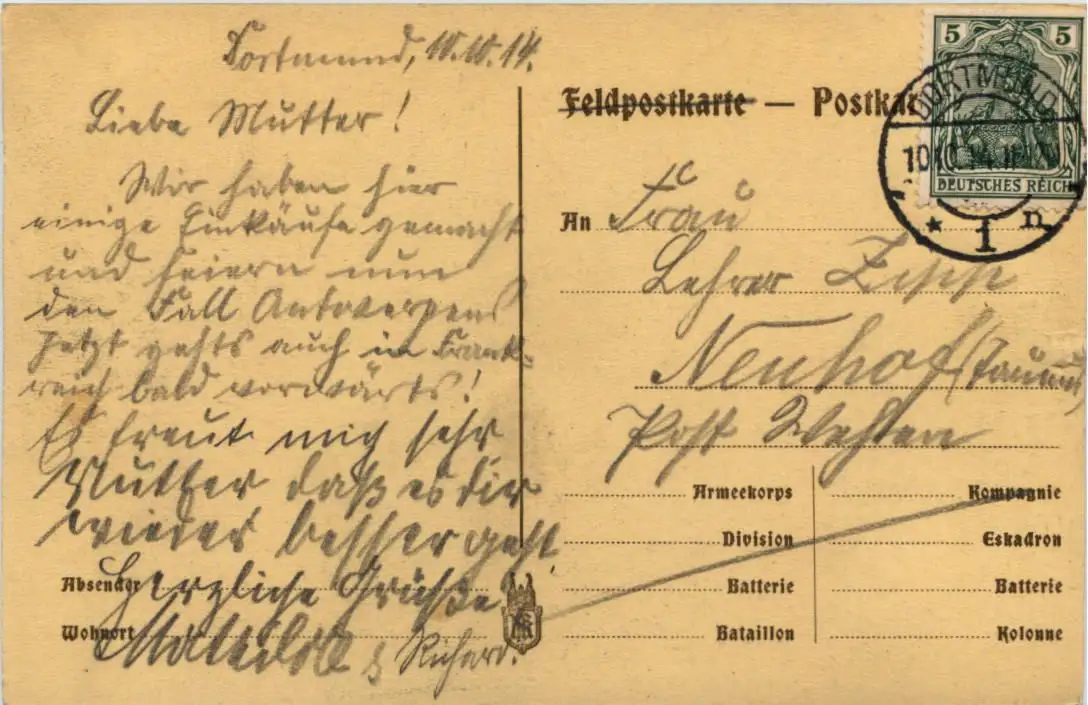 Dortmund, 10.10.14.
Liebe Mutter!
Wir haben hier
einige Einkäufe gemacht
und feiern nun
den Fall Antwerpens
Jetzt gehts auch in Frank-
reich bald vorwärts!
Es freut mich sehr
Mutter daß es dir
wieder besser geht.
Herzliche Grüße
Mathilde & Richard.
Absender
Wohnort
Feldpostkarte — Postkar
5 5
DEUTSCHES REICH
DORTMUND
10.10.14
* 1 n
An Frau
Lehrer Zipp
Neuhof (Taunus)
Post Wehen
Armeekorps
Division
Batterie
Bataillon
Kompagnie
Eskadron
Batterie
Kolonne